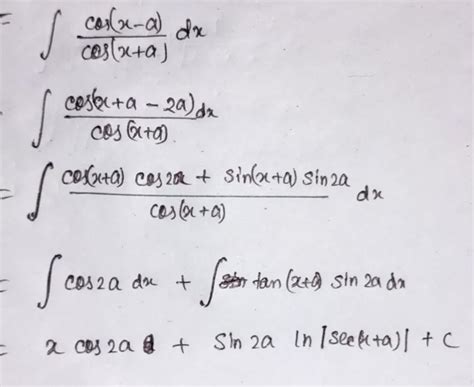 = ∫ cos(x-a)/cos(x+a) dx
∫ cos(x+a - 2a)/cos(x+a) dx
= ∫ (cos(x+a) cos2a + sin(x+a) sin2a)/cos(x+a) dx
= ∫ cos2a dx + ∫ tan(x+a) sin 2a dx
= x cos2a + sin 2a ln |sec(x+a)| + C